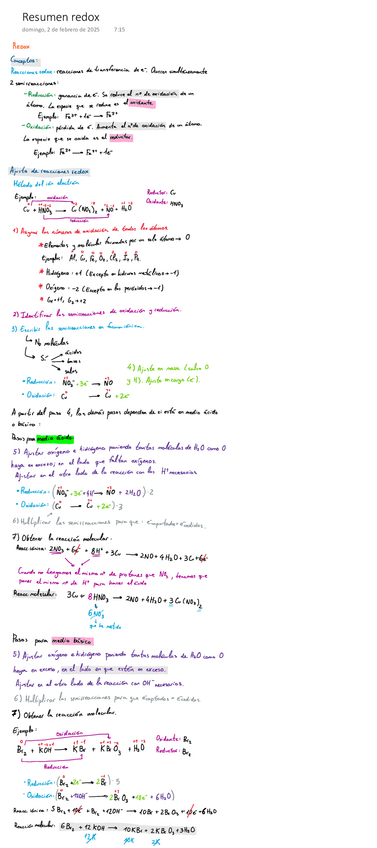 Resumen redox
domingo, 2 de febrero de 2025 7:15
REDOX
Conceptos:
Reacciones redox: reacciones de transferencia de e⁻. Ocurren simultáneamente
2 semirreacciones:
- Reducción: ganancia de e⁻. Se reduce el nº de oxidación de un
átomo. La especie que se reduce es el oxidante.
Ejemplo: Fe³⁺ + 1e⁻ → Fe²⁺
- Oxidación: pérdida de e⁻. Aumenta el nº de oxidación de un átomo.
La especie que se oxida es el reductor.
Ejemplo: Fe²⁺ → Fe³⁺ + 1e⁻
Ajuste de reacciones redox
Método del ión electrón
Ejemplo: oxidación
Reductor: Cu
Oxidante: HNO₃
Cu + HNO₃ → Cu(NO₃)₂ + NO + H₂O
reducción
1) Asignar los números de oxidación de todos los átomos
* Elementos y moléculas formadas por un solo átomo → 0
* Hidrógeno: +1 (Excepto en hidruros metálicos → -1)
* Oxígeno: -2 (Excepto en los peróxidos → -1)
* G₁ → +1, G₂ → +2
2) Identificar las semirreacciones de oxidación y reducción.
3) Escribir las semirreacciones en forma iónica.
No moléculas
Sí
ácidos
bases
sales
4) Ajuste en masa (salvo O
y H). Ajuste en carga (e⁻).
• Reducción: NO₃⁻ + 3e⁻ → NO
• Oxidación: Cu → Cu + 2e⁻
A partir del paso 4, los demás pasos dependen de si está en medio ácido
o básico:
Pasos para medio ácido:
5) Ajustar oxígeno e hidrógeno poniendo tantas moléculas de H₂O como O
haya en exceso, en el lado que faltan oxígenos.
Ajustar en el otro lado de la reacción con los H⁺ necesarios
• Reducción: (NO₃⁻ + 3e⁻ + 4H⁺ → NO + 2H₂O)·2
• Oxidación: (Cu → Cu + 2e⁻)·3
6) Multiplicar las semirreacciones para que: e⁻captados = e⁻cedidos.
7) Obtener la reacción molecular.
Reacc iónica: 2NO₃ + 6e⁻ + 8H⁺ + 3Cu → 2NO + 4H₂O + 3Cu + 6e⁻
Cuando no tengamos el mismo nº de protones que NO₃, tenemos que
poner el mismo nº de H⁺ para hacer el ácido
Reacc molecular: 3Cu + 8HNO₃ → 2NO + 4H₂O + 3Cu(NO₃)₂
6NO₃
que he metido
Pasos para medio básico:
5) Ajustar oxígeno e hidrógeno poniendo tantas moléculas de H₂O como O
haya en exceso, en el lado en que estén en exceso.
Ajustar en el otro lado de la reacción con OH⁻ necesarios.
6) Multiplicar las semirreacciones para que e⁻captados = e⁻cedidos
7) Obtener la reacción molecular.
Ejemplo:
oxidación
Oxidante: Br₂
Reductor: Br₂
Br₂ + KOH → KBr + KBrO₃ + H₂O
Reducción
- Reducción: (Br₂ + 2e⁻ → 2Br)·5
- Oxidación: (Br₂ + 12OH⁻ → 2BrO₃ + 10e⁻ + 6H₂O)
Reacc iónica: 5Br₂ + 10e⁻ + Br₂ + 12OH⁻ → 10Br + 2BrO₃ + 10e⁻ + 6H₂O
Reacción molecular: 6Br₂ + 12KOH → 10KBr + 2KBrO₃ + 3H₂O
12K 10K 2K